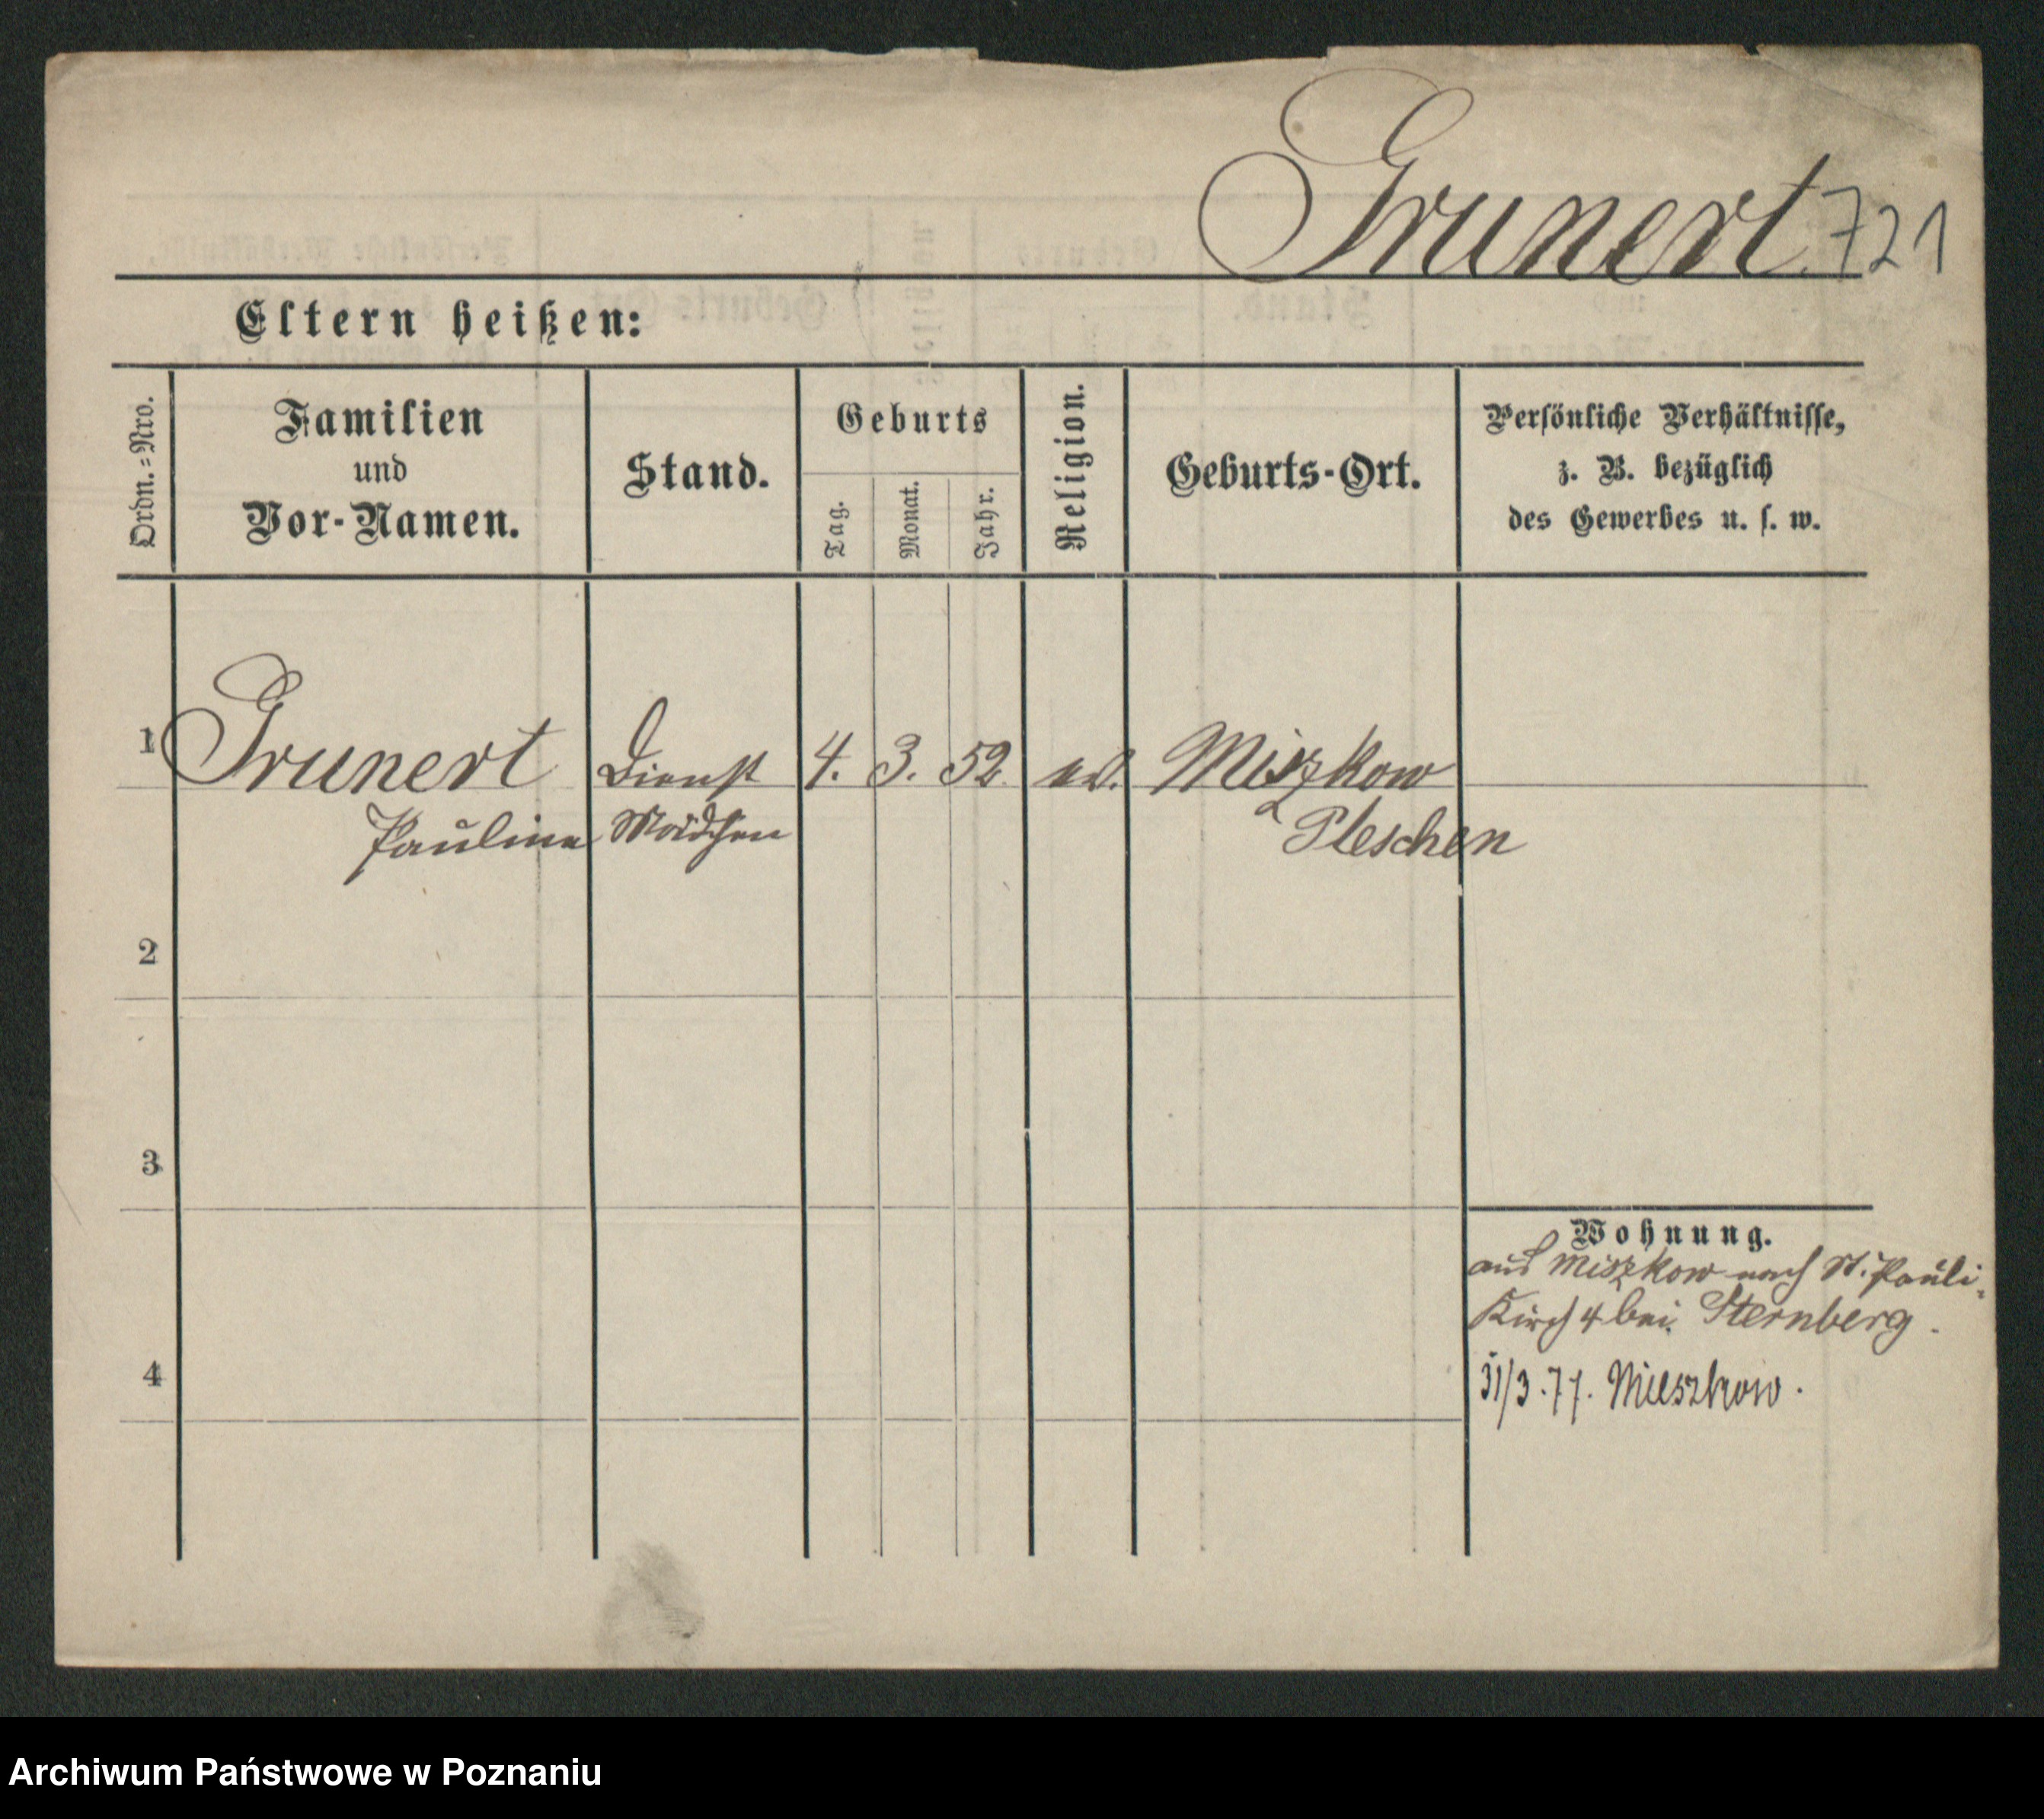 Grunert. 721
Eltern heißen:
Ordn.=Nro.
Familien
und
Vor-Namen.
Stand.
Geburts
Tag.
Monat.
Jahr.
Religion.
Geburts-Ort.
Persönliche Verhältnisse,
z. B. bezüglich
des Gewerbes u. s. w.
1 Grunert Dienst 4. 3. 52 ev. Miszkow
Pauline Mädchen Pleschen
2
3
Wohnung.
aus Miszkow nach St. Pauli-
Kirch 4 bei Sternberg.
4
31/3.77. Mieszkow.
Archiwum Państwowe w Poznaniu